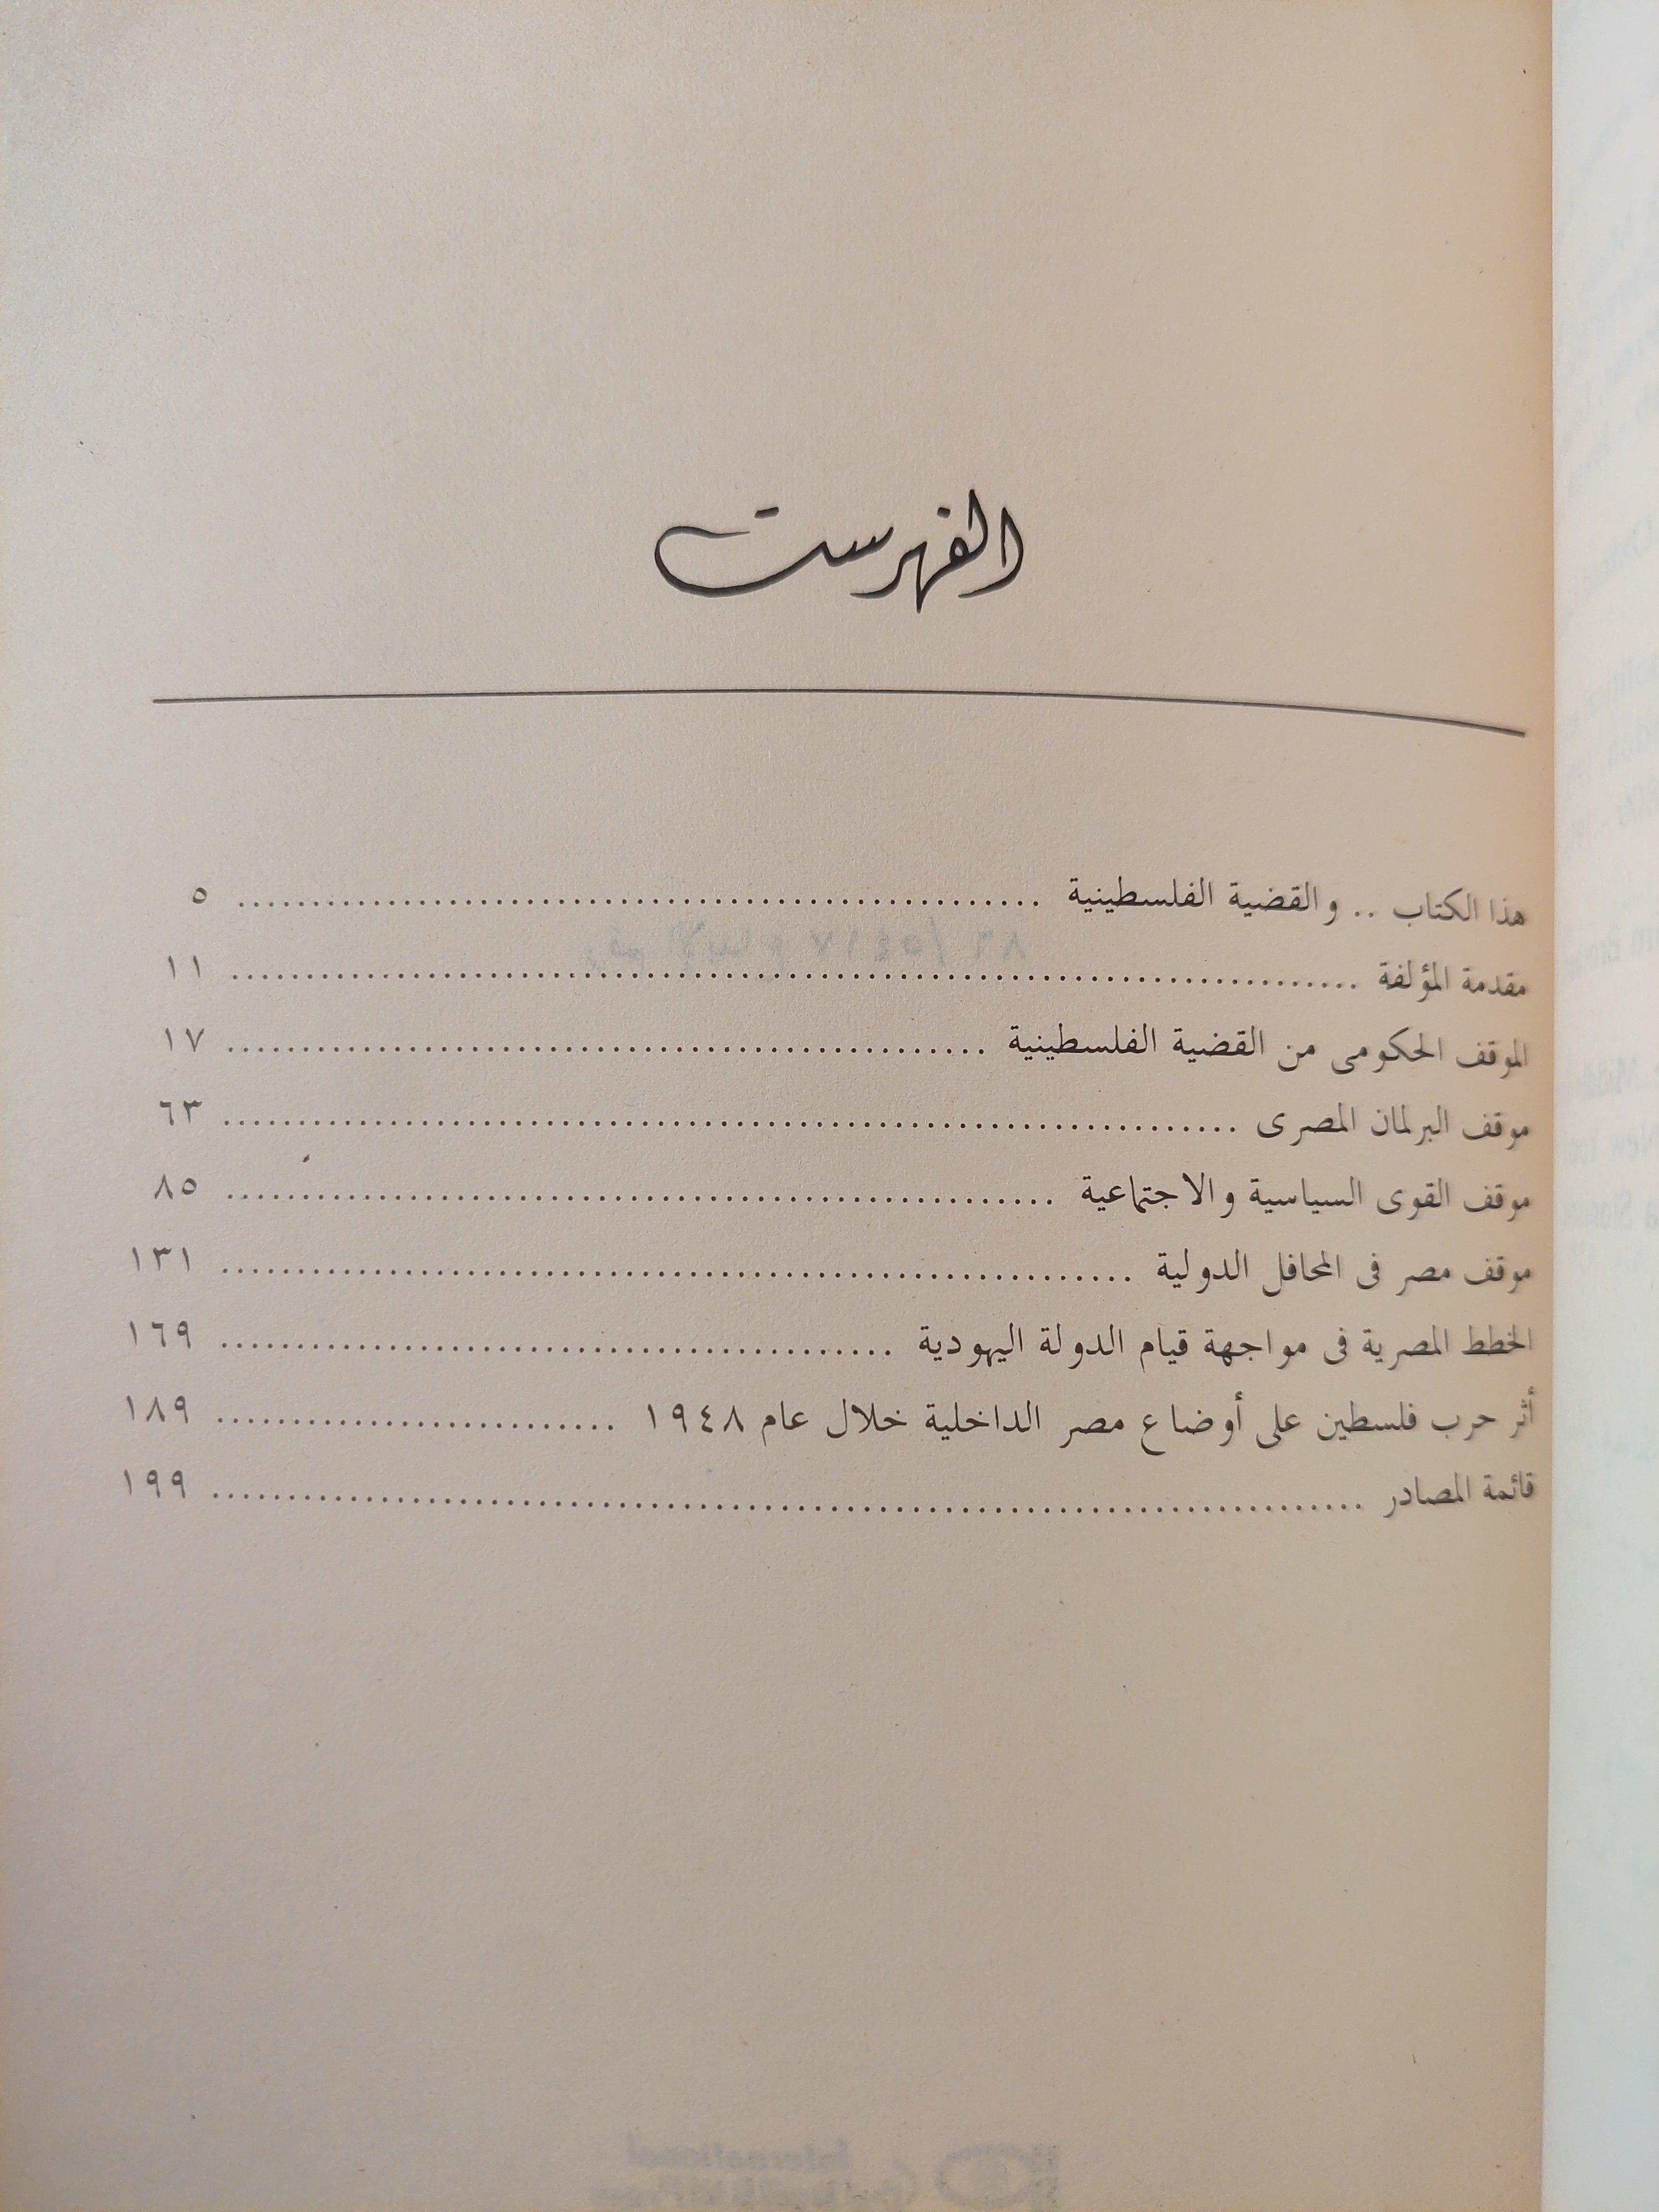 الفهرست
هذا الكتاب .. والقضية الفلسطينية ..................................................... ٥
مقدمة المؤلفة ........................................................................... ١١
الموقف الحكومى من القضية الفلسطينية .................................................. ١٧
موقف البرلمان المصرى .................................................................... ٦٣
موقف القوى السياسية والاجتماعية ....................................................... ٨٥
موقف مصر فى المحافل الدولية ............................................................ ١٣١
الخطط المصرية فى مواجهة قيام الدولة اليهودية ............................................. ١٦٩
أثر حرب فلسطين على أوضاع مصر الداخلية خلال عام ١٩٤٨ ........................... ١٨٩
قائمة المصادر ............................................................................ ١٩٩